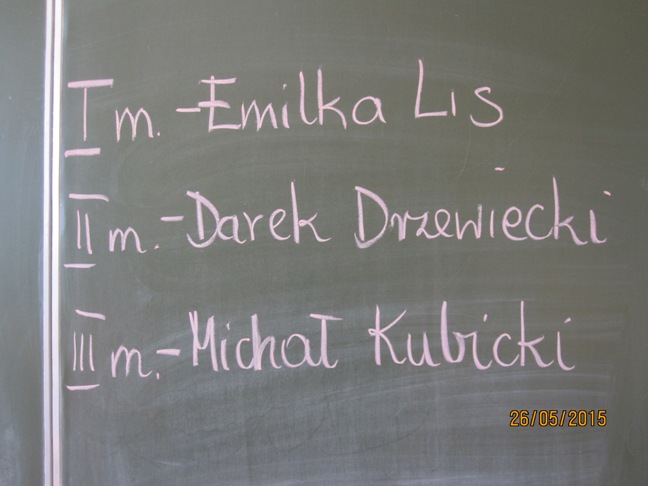 I m. - Emilka Lis
II m. - Darek Drzewiecki
III m. - Michał Kubicki
26/05/2015